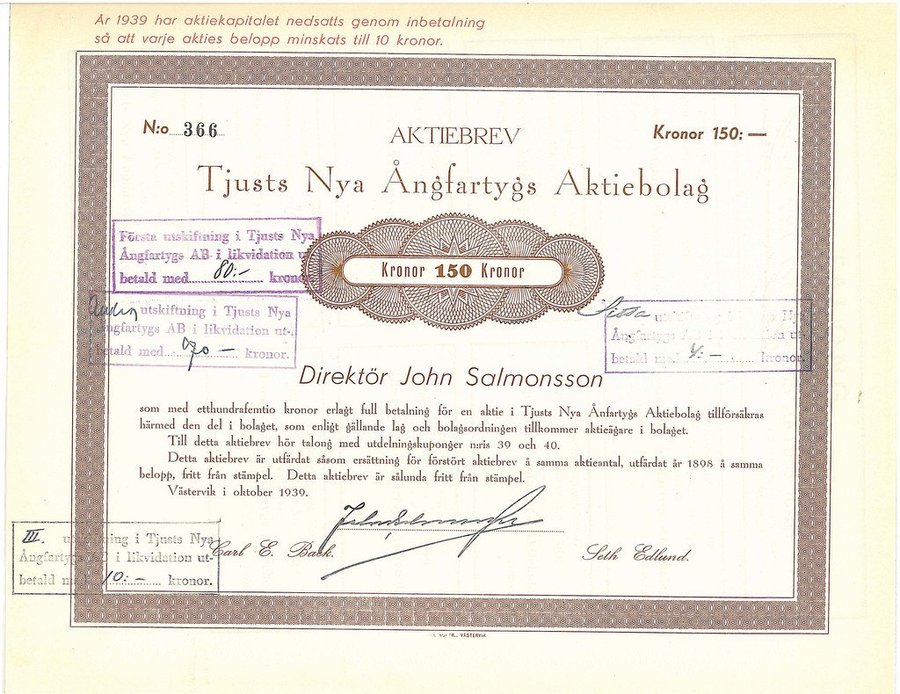 År 1939 har aktiekapitalet nedsatts genom inbetalning
så att varje akties belopp minskats till 10 kronor.
N:o 366
AKTIEBREV
Kronor 150: —
Tjusts Nya Ångfartygs Aktiebolag
Första utskiftning i Tjusts Nya
Ångfartygs AB i likvidation
betald med 80:- kronor
Kronor 150 Kronor
Andra utskiftning i Tjusts Nya
Ångfartygs AB i likvidation ut-
betald med kronor.
Sista
Ångfartygs likvidation ut-
betald med 4:- kronor.
Direktör John Salmonsson
som med etthundrafemtio kronor erlagt full betalning för en aktie i Tjusts Nya Ånfartygs Aktiebolag tillförsäkras
härmed den del i bolaget, som enligt gällande lag och bolagsordningen tillkommer aktieägare i bolaget.
Till detta aktiebrev hör talong med utdelningskuponger n:ris 39 och 40.
Detta aktiebrev är utfärdat såsom ersättning för förstört aktiebrev å samma aktieantal, utfärdat år 1898 å samma
belopp, fritt från stämpel. Detta aktiebrev är sålunda fritt från stämpel.
Västervik i oktober 1939.
III. utskiftning i Tjusts Nya
Ångfartygs AB i likvidation ut-
betald med 10:- kronor.
Carl E. Back.
Seth Edlund.
VÄSTERVIK